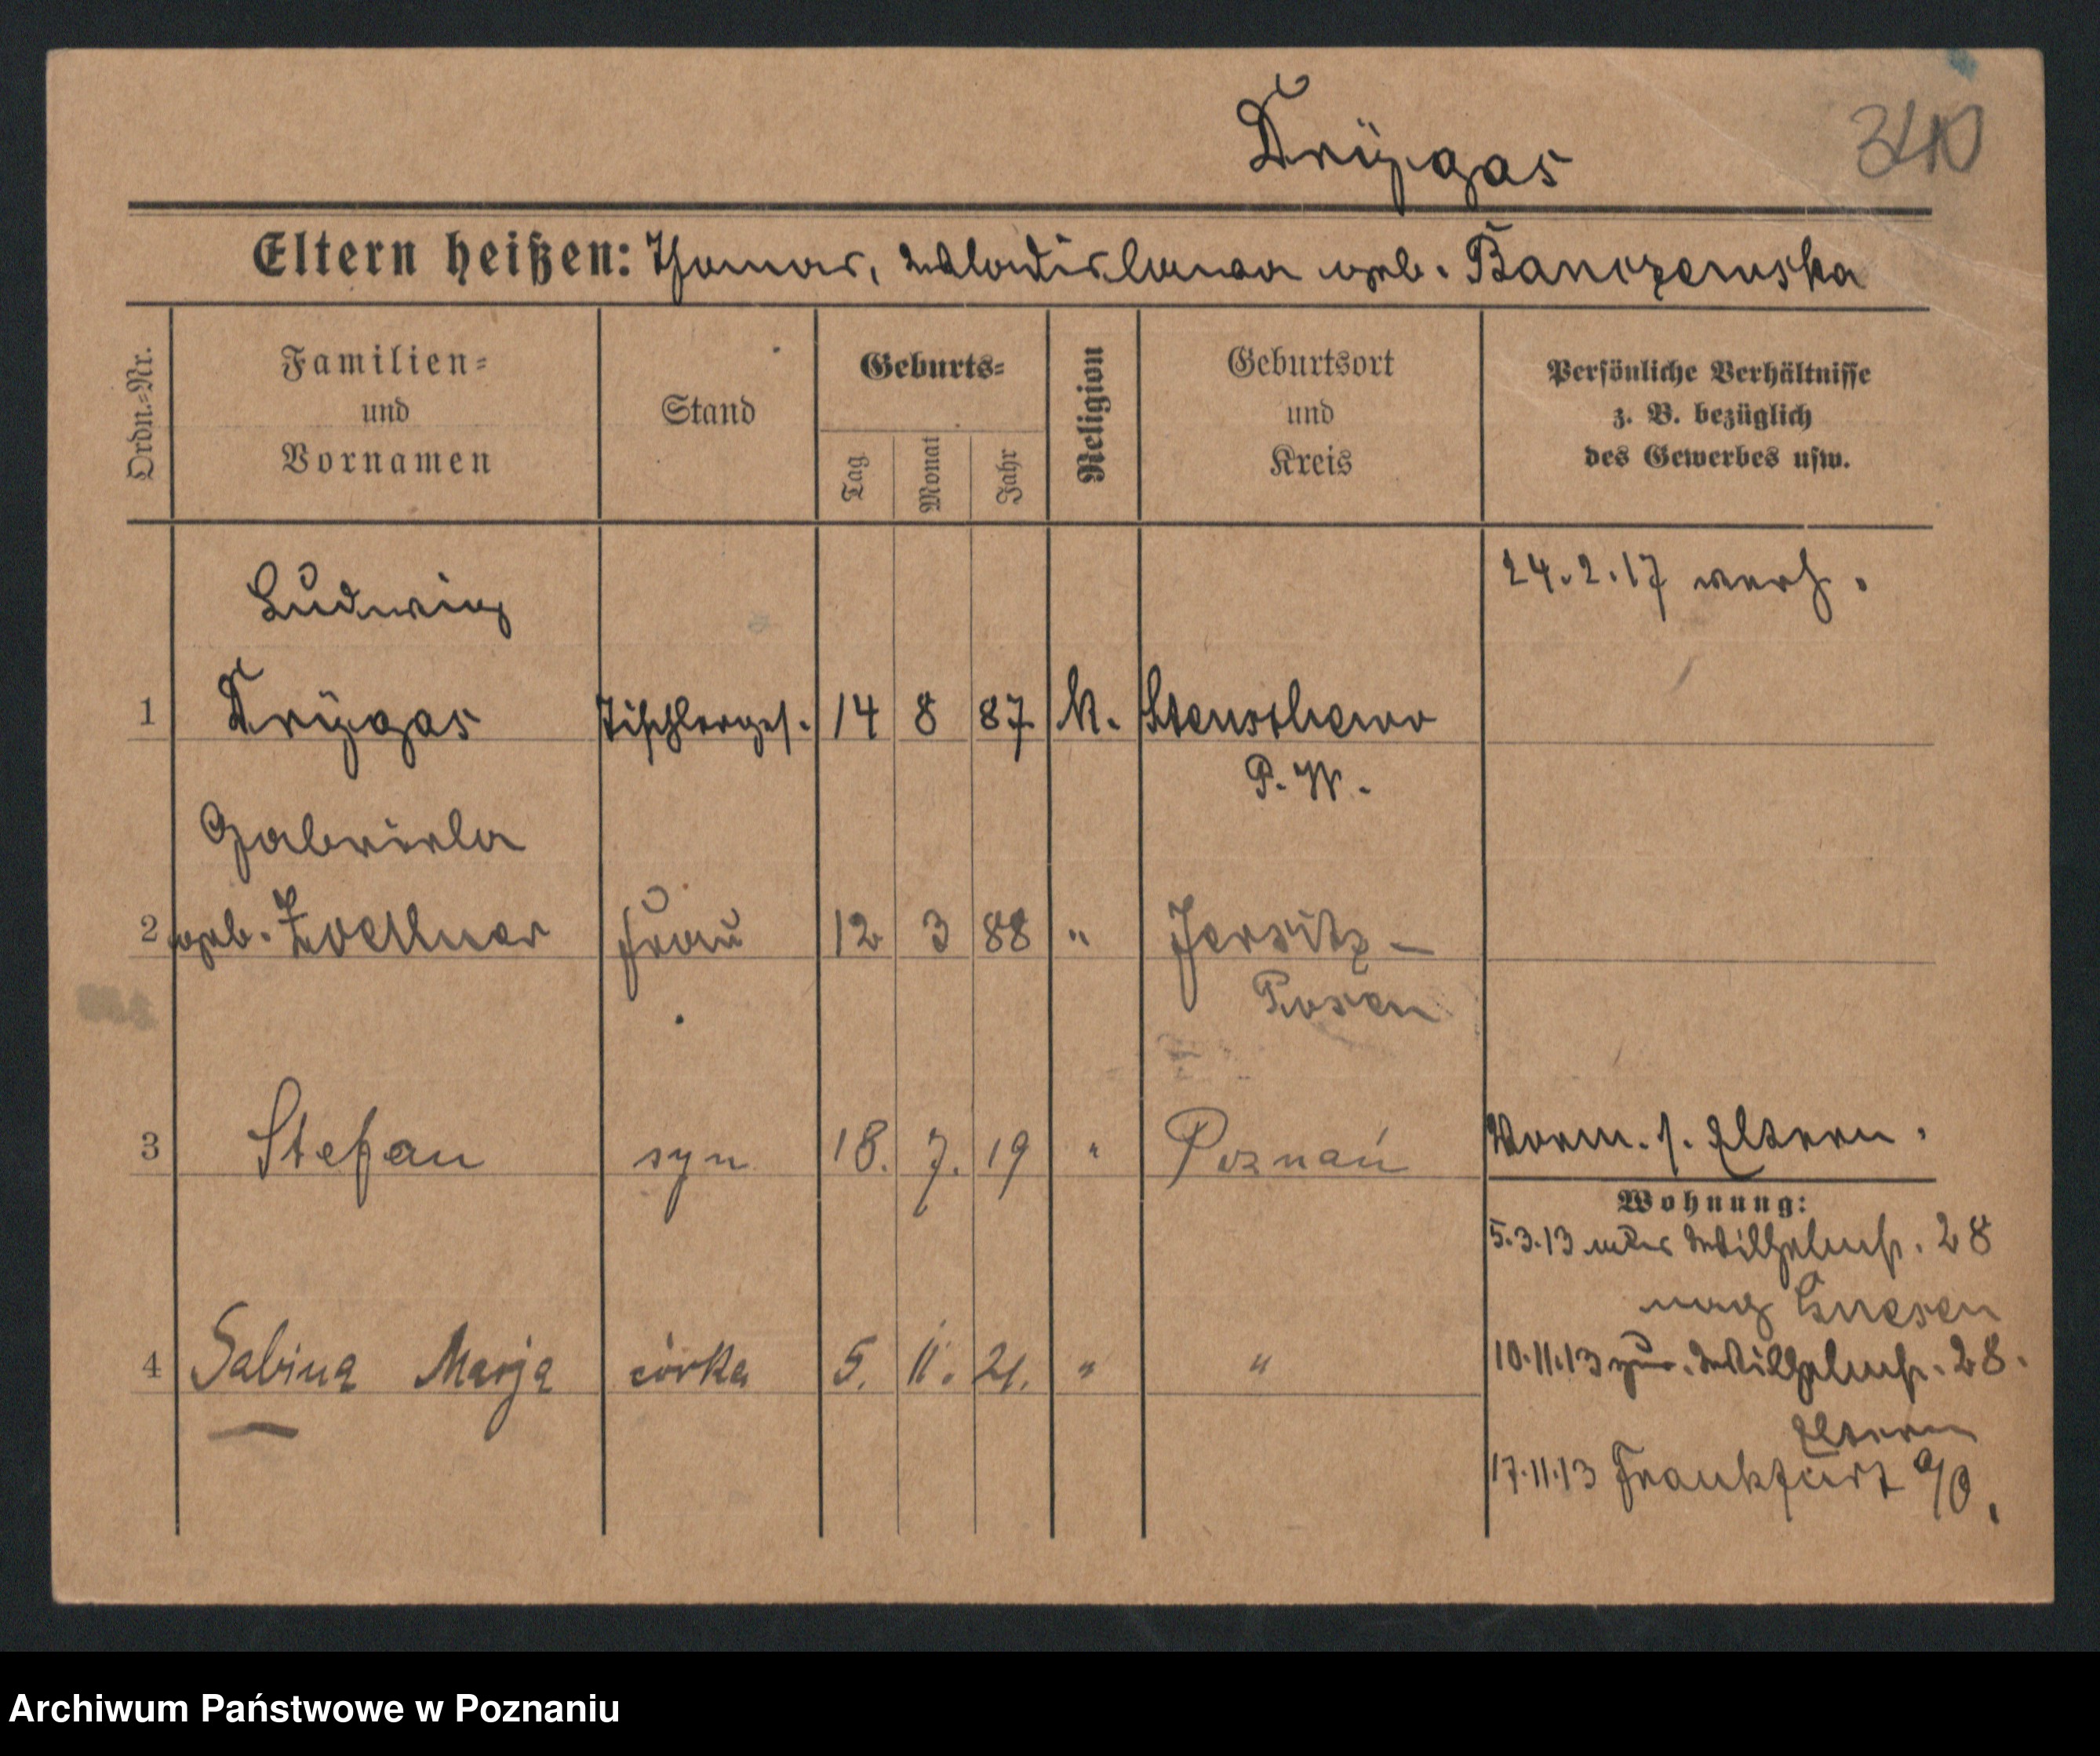 Drÿgas
340
Eltern heißen: Thomas, Wladislawa geb. Banczewska
Ordn.-Nr.
Familien-
und
Vornamen
Stand
Geburts-
Tag
Monat
Jahr
Religion
Geburtsort
und
Kreis
Persönliche Verhältnisse
z. B. bezüglich
des Gewerbes usw.
24.2.17 verh.
Ludwig
1 Drÿgas Tischlerges. 14 8 87 K. Stenschewo
P. W.
Gabriela
2 geb. Zoellner Frau 12 3 88 " Jersitz -
Posen
3 Stefan syn 18. 7. 19 " Poznań
Vorm. s. Eltern.
Wohnung:
5.3.13 Wilhelmstr. 28
nach Gnesen
4 Sabina Marja córka 5. 11. 21. " "
10.11.13 zur. Wilhelmstr. 28.
Eltern
17.11.13 Frankfurt a/O.
Archiwum Państwowe w Poznaniu